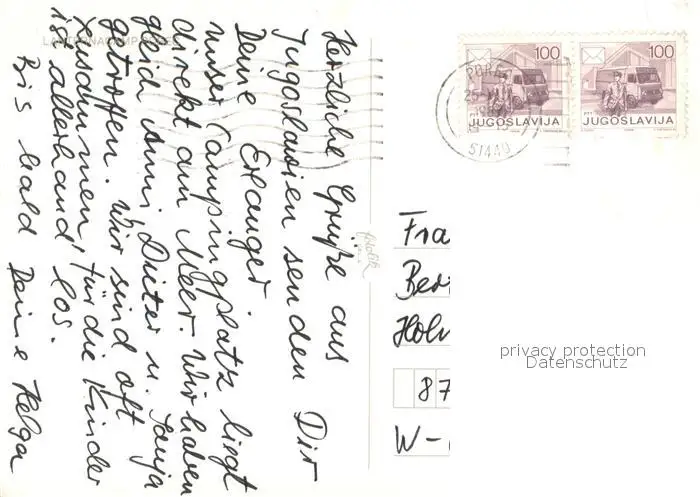 Herzliche Grüße aus
Jugoslawien senden Dir
Deine Erlanger
unser Campingplatz liegt
direkt am Meer. Wir haben
gleich Anni, Dieter u. Tanja
getroffen. Wir sind oft
zusammen, für die Kinder
ist allerhand los.
Bis bald Deine Helga
100
JUGOSLAVIJA
100
JUGOSLAVIJA
51449
Fra
Ber
Holn
87
W-
privacy protection
Datenschutz